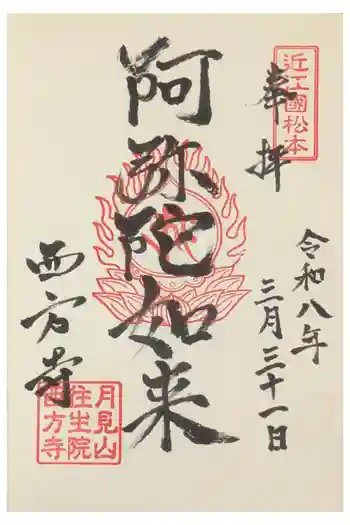 近江國松本
奉拝
令和八年
三月三十一日
阿弥陀如来
西方寺
月見山
住生院
西方寺